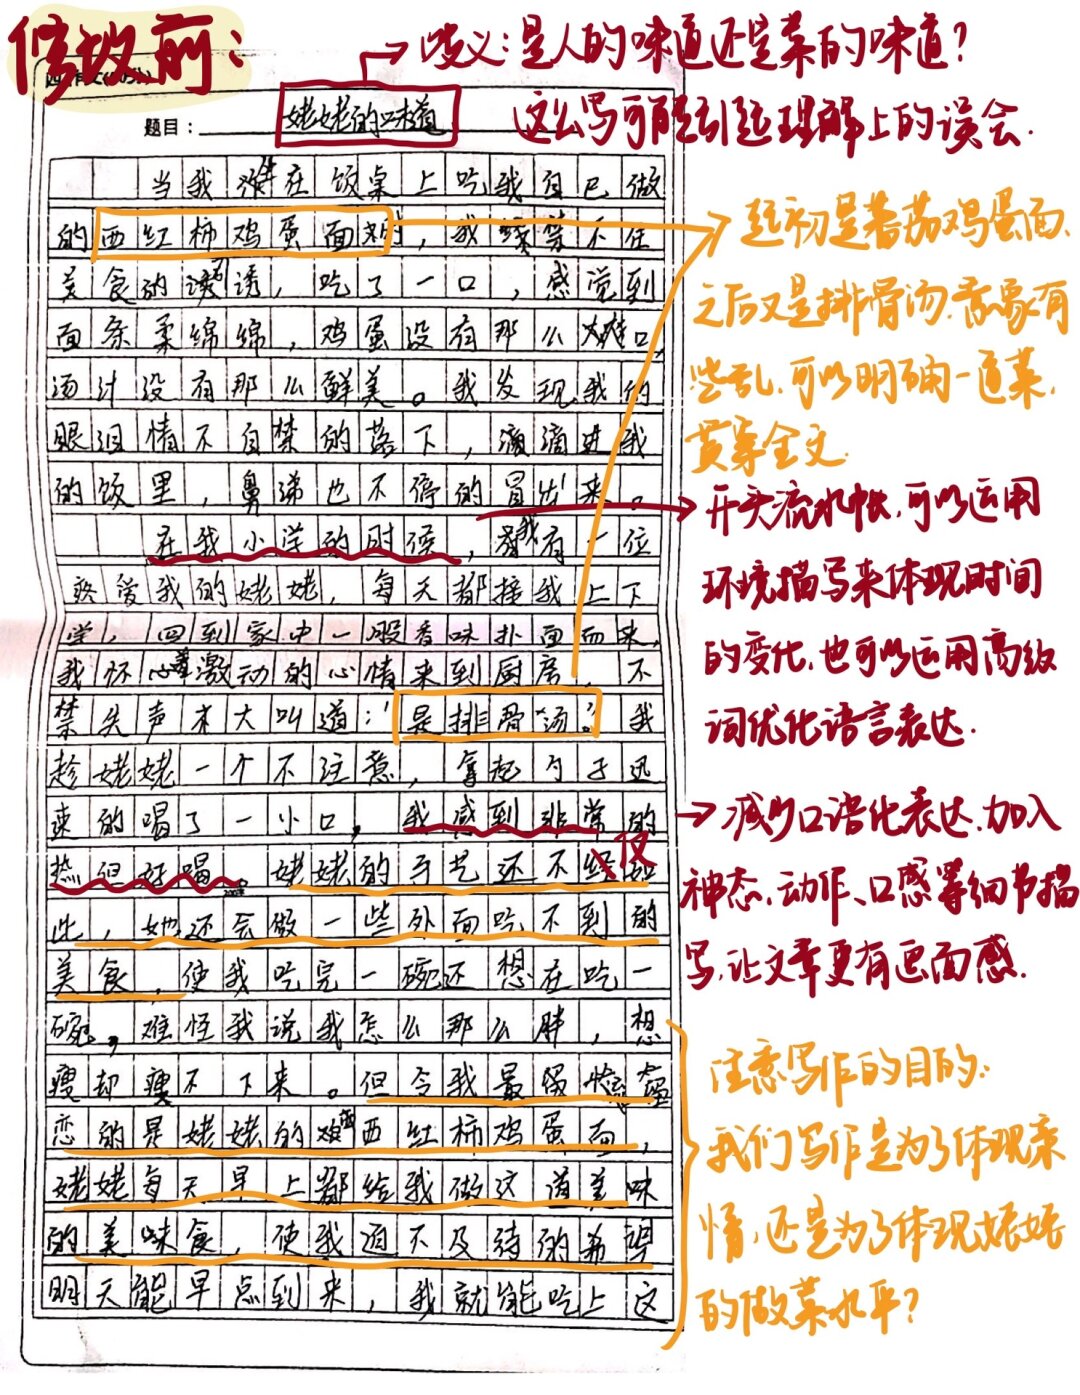 修改前：
→歧义：是人的味道还是菜的味道？
这么写可能引起理解上的误会.
题目：姥姥的味道
当我坐在饭桌上吃我自己做
的西红柿鸡蛋面时，我禁不住
美食的诱，吃了一口，感觉到
面条柔绵绵，鸡蛋没有那么爽口,
汤汁没有那么鲜美。我发现我的
眼泪情不自禁的落下，滴滴进我
的饭里，鼻涕也不停的冒出来。
在我小学的时候，我有一位
疼爱我的姥姥，每天都接我上下
学，回到家中一股香味扑面而来，
我怀心激动的心情来到厨房，不
禁失声大叫道："是排骨汤"。我
趁姥姥一个不注意，拿起勺子迅
速的喝了一小口，我感到非常的
热但好喝。姥姥的手艺还不仅如
此，她还会做一些外面吃不到的
美食，使我吃完一碗还想在吃一
碗，难怪我说我怎么那么胖，想
瘦却瘦不下来。但令我最留恋
恋的是姥姥的西红柿鸡蛋面，
姥姥每天早上都给我做这道美味
的美味食，使我迫不及待的希望
明天能早点到来，我就能吃上这
起初是蕃茄鸡蛋面,
之后又是排骨汤,意象有
些乱,可以明确一道菜,
贯穿全文
→开头流水帐,可以运用
环境描写来体现时间
的变化,也可以运用高级
词优化语言表达.
→减少口语化表达,加入
神态、动作、口感等细节描
写,让文章更有画面感.
注意写作的目的:
我们写作是为了体现亲
情,还是为了体现姥姥
的做菜水平?